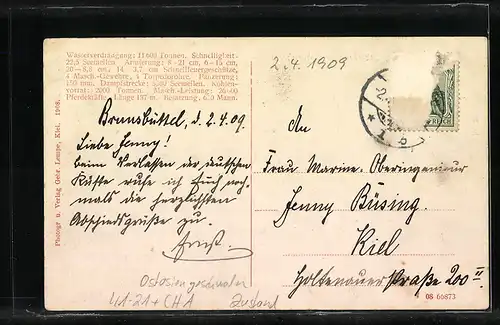 Wasserverdrängung: 11600 Tonnen. Schnelligkeit:
22,5 Seemeilen Armierung: 8-21 cm, 6-15 cm,
20-8,8 cm, 14 3,7 cm Schnellfeuergeschütze,
4 Masch.-Gewehre, 4 Torpedorohre. Panzerung:
150 mm. Dampfstrecke: Seemeilen. Kohlen-
vorrat: 2000 Tonnen. Masch.-Leistung: 26000
Pferdekräfte. Länge 137 m. Besatzung, 650 Mann.
2.4.1909
Brunsbüttel, d. 2.4.09.
Liebe Jenny!
Beim Verlassen der deutschen
Küste rufe ich Euch noch-
mals die herzlichsten
Abschiedsgrüße zu.
Ernst.
An
Frau Marine-Oberingenieur
Jenny Büsing.
Kiel
Holtenauerstraße 200 II
Photogr u. Verlag Gebr. Lempe, Kiel. 1908.
Ostasiengeschwader
41-21+CHA Zustand
08 66873